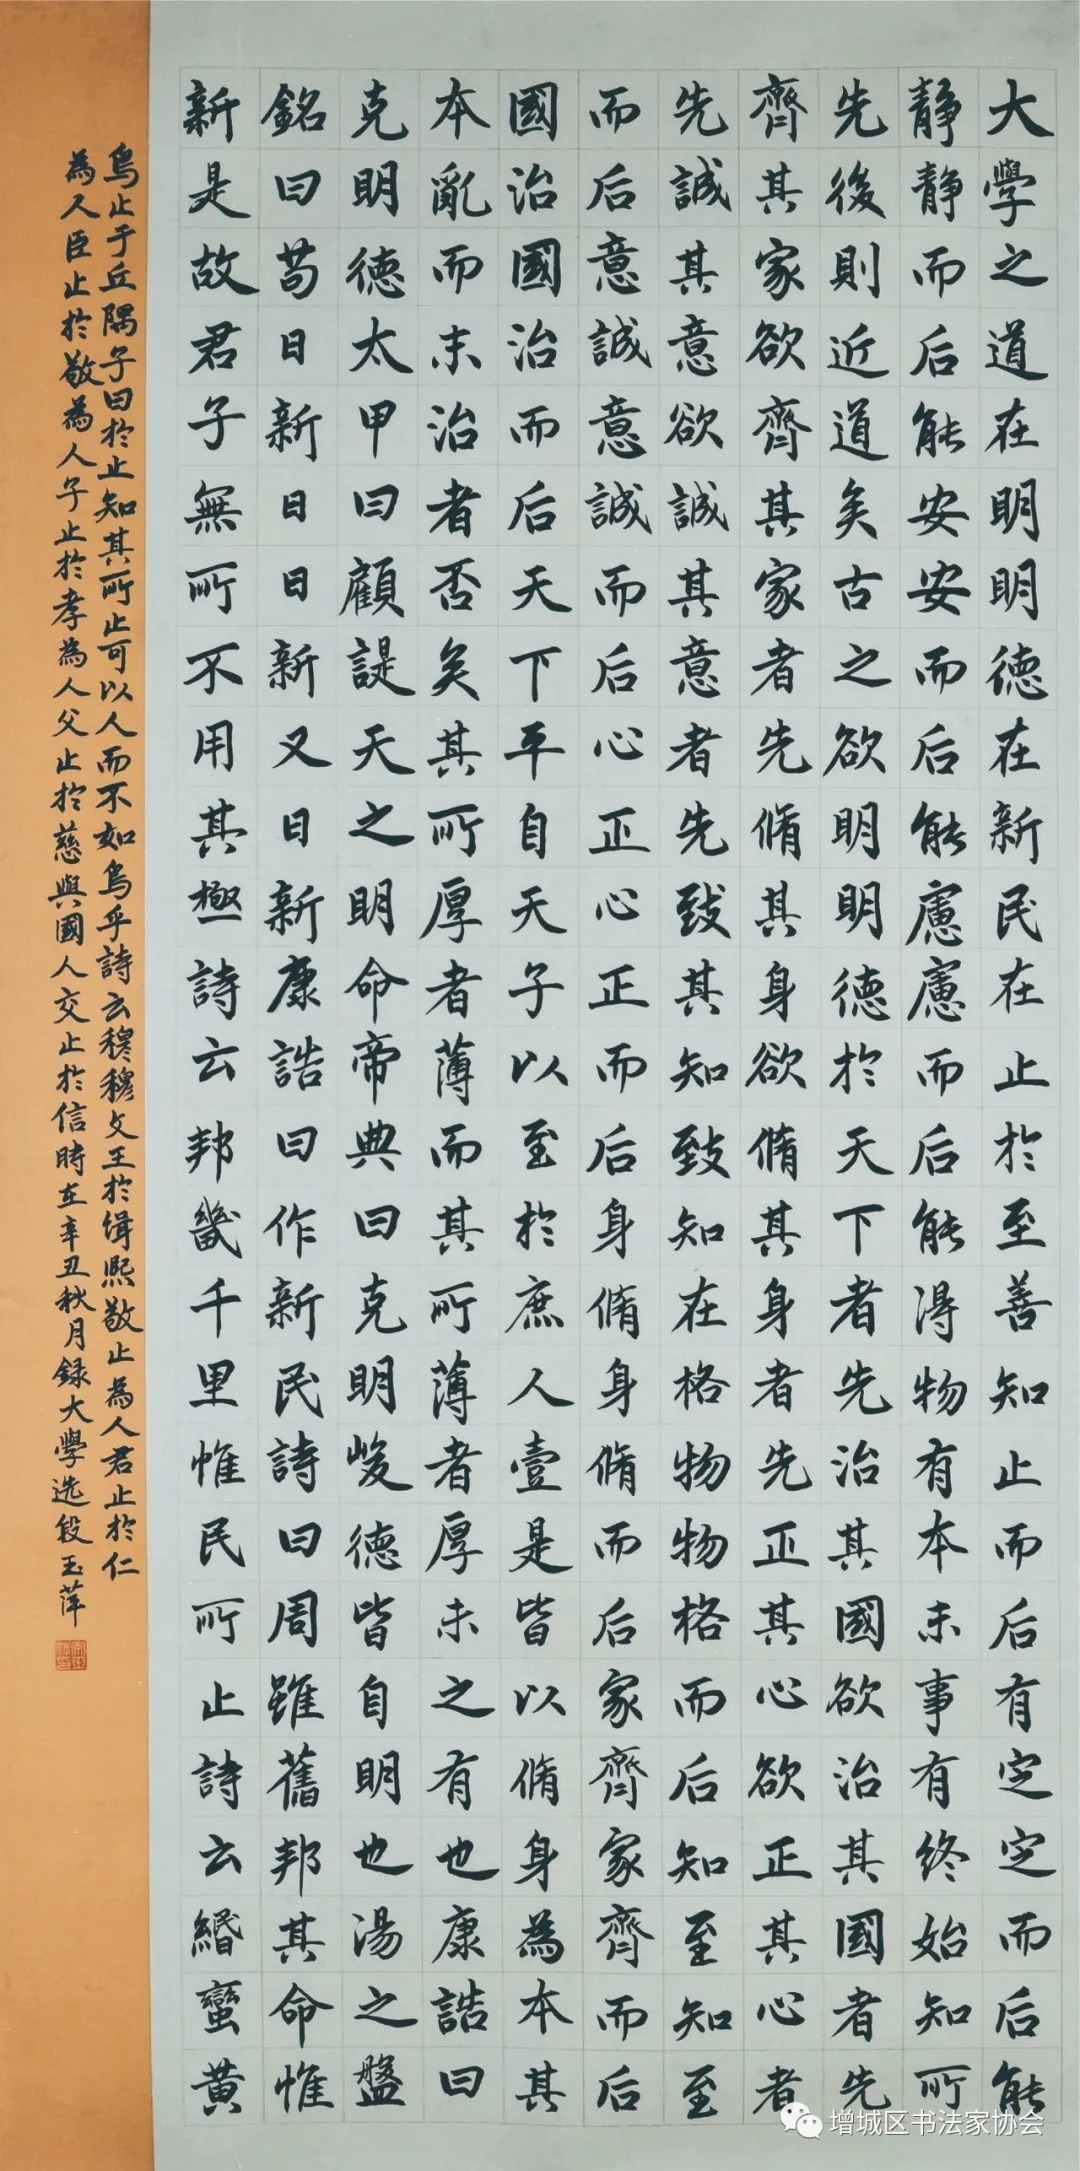 大學之道在明明德在新民在止於至善知止而后有定定而后能
靜靜而后能安安而后能慮慮而后能得物有本末事有終始知所
先後則近道矣古之欲明明德於天下者先治其國欲治其國者先
齊其家欲齊其家者先脩其身欲脩其身者先正其心欲正其心者
先誠其意欲誠其意者先致其知致知在格物物格而后知至知至
而后意誠意誠而后心正心正而后身脩身脩而后家齊家齊而后
國治國治而后天下平自天子以至於庶人壹是皆以脩身為本其
本亂而末治者否矣其所厚者薄而其所薄者厚未之有也康誥曰
克明德太甲曰顧諟天之明命帝典曰克明峻德皆自明也湯之盤
銘曰苟日新日日新又日新康誥曰作新民詩曰周雖舊邦其命惟
新是故君子無所不用其極詩云邦畿千里惟民所止詩云緡蠻黃
鳥止于丘隅子曰於止知其所止可以人而不如鳥乎詩云穆穆文王於緝熙敬止為人君止於仁
為人臣止於敬為人子止於孝為人父止於慈與國人交止於信時在辛丑秋月錄大學选段玉萍
增城区书法家协会